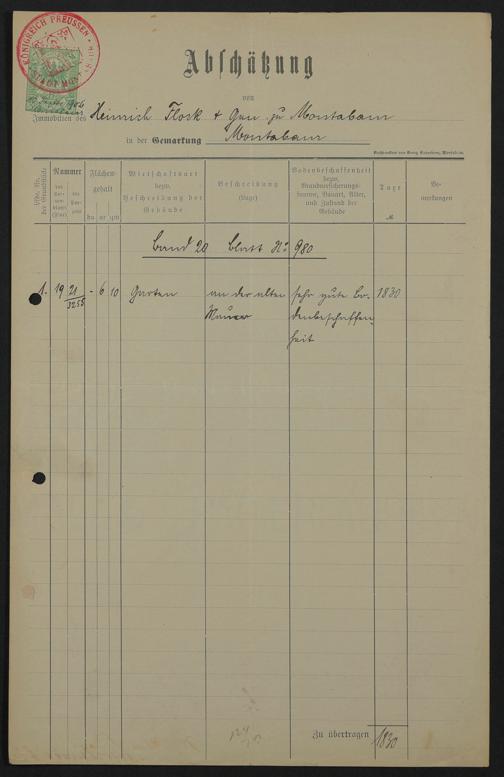 KÖNIGREICH PREUSSEN
Abschätzung
von
Immobilien des Heinrich Flock & Gen. zu Montabaur
in der Gemarkung Montabaur
Nummer
Flächen-
gehalt
ha ar qm
Wirtschaftsart
bezw.
Beschreibung der
Gebäude
Beschreibung
(Lage)
Bodenbeschaffenheit
bezw.
Brandversicherungs-
summe, Bauart, Alter,
und Zustand der
Gebäude
Taxe
M
Be-
merkungen
Band 20 Blatt No. 980
1. 19 21/3255 - 6 10 Garten an der alten sehr gute Bo- 1830
Mauer denbeschaffen
heit
Zu übertragen 1830